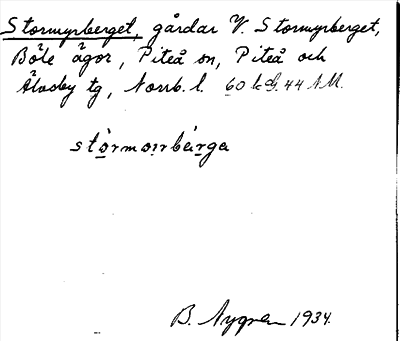 Stormyrberget, gårdar V. Stormyrberget,
Böle ägor, Piteå sn, Piteå och
Älvsby tg, Norrb. l. 60 k G. 44 NM.
stórmorrbärga
B. Nygren 1934.